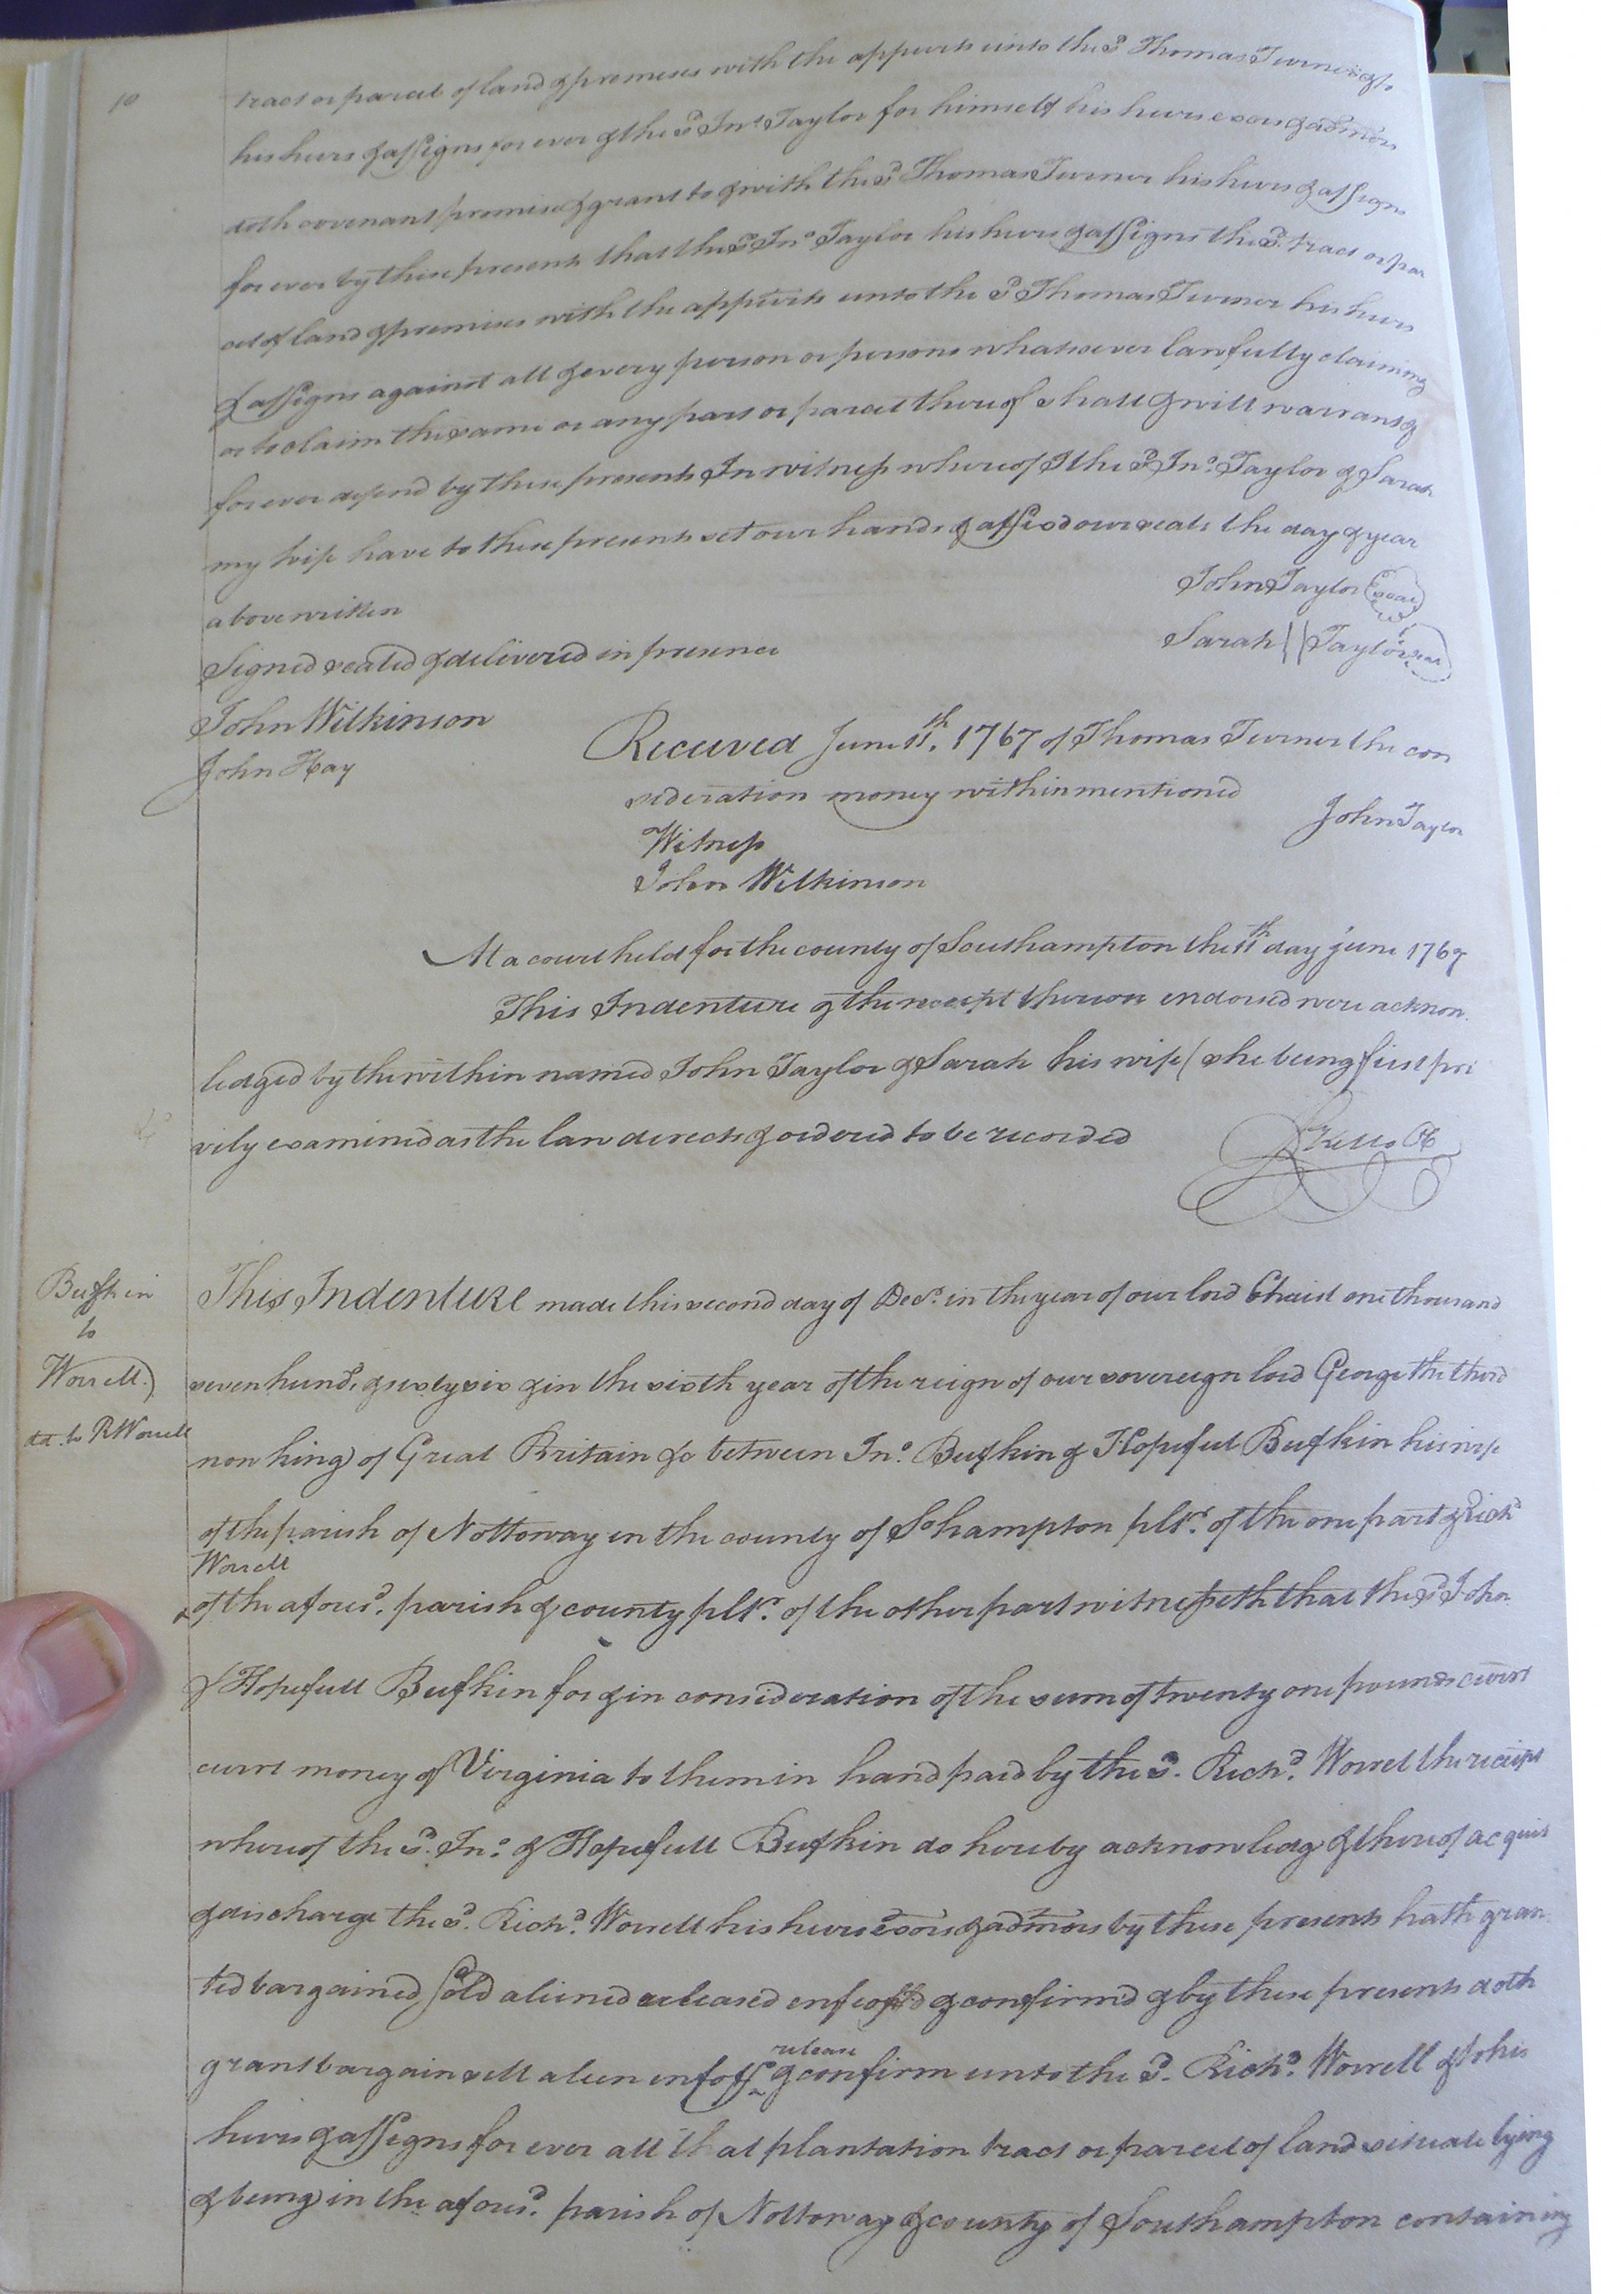 10
tract or parcel of land & premises with the appurts unto the sd Thomas Turner & to
his heirs & assigns for ever & the sd Jno Taylor for himself his heirs exors & admors
doth covenant promise & grant to & with the sd Thomas Turner his heirs & assigns
for ever by these presents that the sd Jno Taylor his heirs & assigns the sd tract or par
cel of land & premises with the appurts unto the sd Thomas Turner his heirs
& assigns against all & every person or persons whatsoever lawfully claiming
or to claim the same or any part or parcel thereof shall & will warrant &
for ever defend by these presents In witness whereof I the sd Jno Taylor & Sarah
my wife have to these presents set our hands & affixd our seals the day & year
above written
John Taylor seal
Signed sealed & delivered in presence
Sarah || Taylor seal
John Wilkinson
John Hay
Received June 11th. 1767 of Thomas Turner the con
sideration money within mentioned
John Taylor
Witness
John Wilkinson
At a court held for the county of Southampton the 11th day june 1767
This Indenture & the receipt thereon endorsed were acknow
ledged by the within named John Taylor & Sarah his wife (she being first pri
vily examined as the law directs & ordered to be recorded
R Kello Ck
Bufkin
to
Worrell)
dd. to R Worrell
This Indenture made this second day of Decr. in the year of our lord Christ one thousand
seven hundd. & sixty six & in the sixth year of the reign of our sovereign lord George the third
now king of Great Britain &c between Jno. Bufkin & Hopeful Bufkin his wife
of the parish of Nottoway in the county of Sohampton pltr. of the one part & Richd
Worrell
of the aforesd. parish & county pltr. of the other part witnesseth that the sd John
& Hopefull Bufkin for & in consideration of the sum of twenty one pounds currt
currt money of Virginia to them in hand paid by the sd. Richd. Worrel the receipt
whereof the sd. Jno. & Hopefull Bufkin do hereby acknowledg & thereof acquit
& discharge the sd. Richd. Worrell his heirs exors & admors by these presents hath gran
ted bargained sold aliened released enfeoffd & confirmd & by these presents doth
grant bargain sell alien enfoff release & confirm unto the sd. Richd. Worrell & to his
heirs & assigns for ever all that plantation tract or parcel of land situate lying
& being in the aforesd. parish of Nottoway & county of Southampton containing